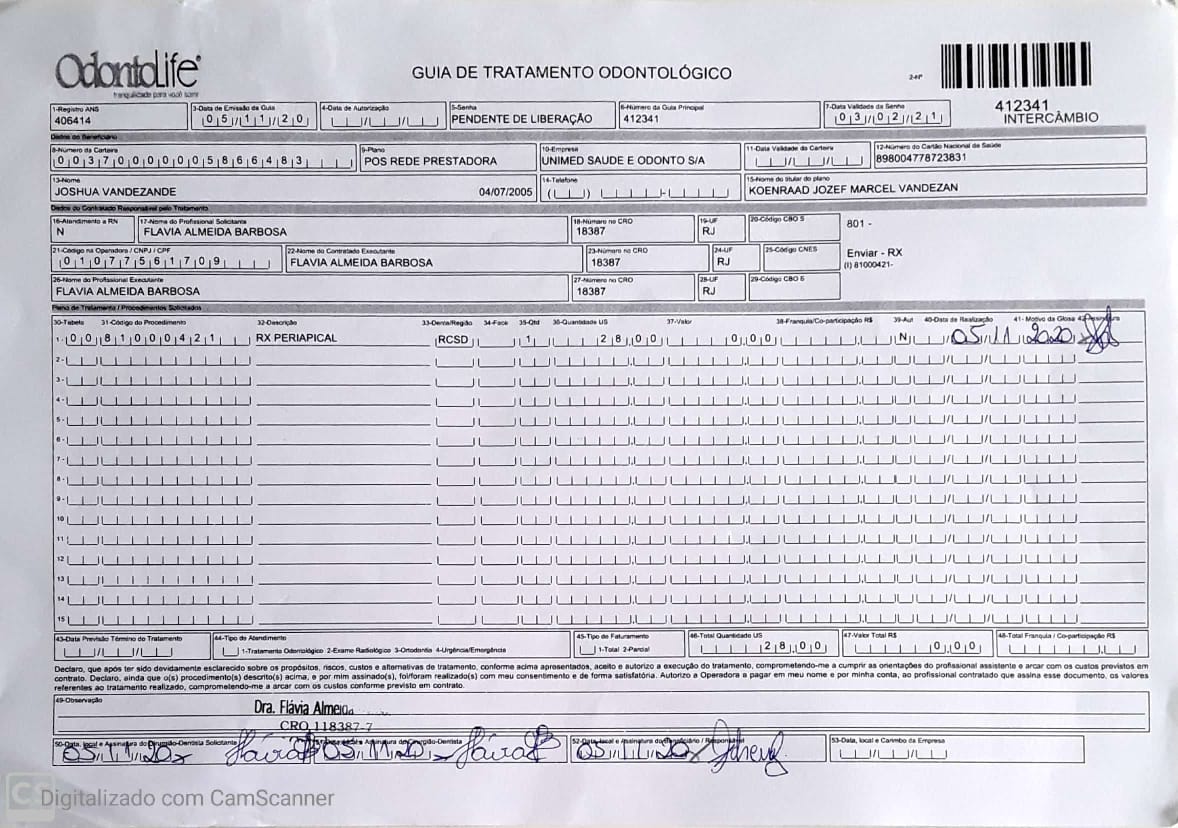 OdontoLife®
tranquilidade para você sorrir
GUIA DE TRATAMENTO ODONTOLÓGICO
2-Nº
412341
INTERCÂMBIO
1-Registro ANS
406414
3-Data de Emissão da Guia
05/11/20
4-Data de Autorização
5-Senha
PENDENTE DE LIBERAÇÃO
6-Número da Guia Principal
412341
7-Data Validade da Senha
03/02/21
Dados do Beneficiário
8-Número da Carteira
00370000005866483
9-Plano
POS REDE PRESTADORA
10-Empresa
UNIMED SAUDE E ODONTO S/A
11-Data Validade da Carteira
12-Número do Cartão Nacional de Saúde
898004778723831
13-Nome
JOSHUA VANDEZANDE 04/07/2005
14-Telefone
15-Nome do titular do plano
KOENRAAD JOZEF MARCEL VANDEZAN
Dados do Contratado Responsável pelo Tratamento
16-Atendimento a RN
N
17-Nome do Profissional Solicitante
FLAVIA ALMEIDA BARBOSA
18-Número no CRO
18387
19-UF
RJ
20-Código CBO S
801 -
21-Código na Operadora / CNPJ / CPF
01077561709
22-Nome do Contratado Executante
FLAVIA ALMEIDA BARBOSA
23-Número no CRO
18387
24-UF
RJ
25-Código CNES
Enviar - RX
(I) 81000421-
26-Nome do Profissional Executante
FLAVIA ALMEIDA BARBOSA
27-Número no CRO
18387
28-UF
RJ
29-Código CBO S
Plano de Tratamento / Procedimentos Solicitados
30-Tabela 31-Código do Procedimento 32-Descrição 33-Dente/Região 34-Face 35-Qtd 36-Quantidade US 37-Valor 38-Franquia/Co-participação R$ 39-Aut 40-Data de Realização 41- Motivo da Glosa 42-Assinatura
1- 00 81000421 RX PERIAPICAL RCSD 1 28,00 0,00 N 05/11/2020
2-
3-
4-
5-
6-
7-
8-
9-
10
11
12
13
14
15
43-Data Previsão Término do Tratamento
44-Tipo de Atendimento
1-Tratamento Odontológico 2-Exame Radiológico 3-Ortodontia 4-Urgência/Emergência
45-Tipo de Faturamento
1-Total 2-Parcial
46-Total Quantidade US
28,00
47-Valor Total R$
0,00
48-Total Franquia / Co-participação R$
Declaro, que após ter sido devidamente esclarecido sobre os propósitos, riscos, custos e alternativas de tratamento, conforme acima apresentados, aceito e autorizo a execução do tratamento, comprometendo-me a cumprir as orientações do profissional assistente e arcar com os custos previstos em
contrato. Declaro, ainda que o(s) procedimento(s) descrito(s) acima, e por mim assinado(s), foi/foram realizado(s) com meu consentimento e de forma satisfatória. Autorizo a Operadora a pagar em meu nome e por minha conta, ao profissional contratado que assina esse documento, os valores
referentes ao tratamento realizado, comprometendo-me a arcar com os custos conforme previsto em contrato.
49-Observação
Dra. Flávia Almeida
CRO 118387-7
50-Data, local e Assinatura do Cirurgião-Dentista Solicitante
05/11/20
05/11/20
52-Data, local e Assinatura do Beneficiário / Responsável
05/11/20
53-Data, local e Carimbo da Empresa
CS Digitalizado com CamScanner